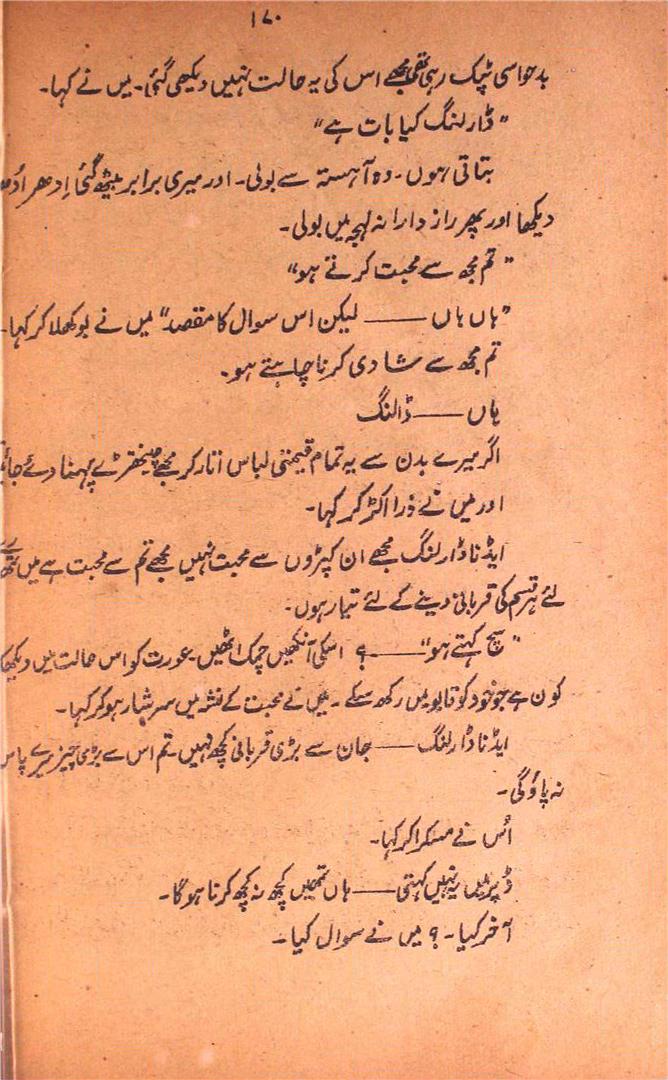 ۱۷۰
بدحواسی ٹپک رہی تھی مجھے اس کی یہ حالت نہیں دیکھی گئی۔ میں نے کہا۔
"ڈارلنگ کیا بات ہے"
بتاتی ہوں۔ وہ آہستہ سے بولی۔ اور میری برابر بیٹھ گئی اِدھر اُدھر
دیکھا اور پھر راز دارانہ لہجہ میں بولی۔
"تم مجھ سے محبت کرتے ہو"
"ہاں ہاں —— لیکن اس سوال کا مقصد" میں نے بوکھلا کر کہا۔
تم مجھ سے شادی کرنا چاہتے ہو۔
ہاں —— ڈالنگ
اگر میرے بدن سے یہ تمام قیمتی لباس اتار کر مجھے چیتھڑے پہنا دئے جائیں
اور میں نے ذرا اکڑ کر کہا۔
ایڈنا ڈارلنگ مجھے ان کپڑوں سے محبت نہیں مجھے تم سے محبت ہے میں
لئے ہر قسم کی قربانی دینے کے لئے تیار ہوں۔
"سچ کہتے ہو" ——؟ اسکی آنکھیں چمک اٹھیں۔ عورت کو اس حالت میں دیکھکر
کون ہے جو خود کو قابو میں رکھ سکے۔ میں نے محبت کے نشہ میں سرشار ہو کر کہا۔
ایڈنا ڈارلنگ —— جان سے بڑی قربانی کچھ نہیں۔ تم اس سے بڑی چیز میرے پاس
نہ پاؤگی۔
اُس نے مسکرا کر کہا۔
ڈیر میں یہ نہیں کہتی —— ہاں تمھیں کچھ نہ کچھ کرنا ہوگا۔
آخر کیا۔؟ میں نے سوال کیا۔